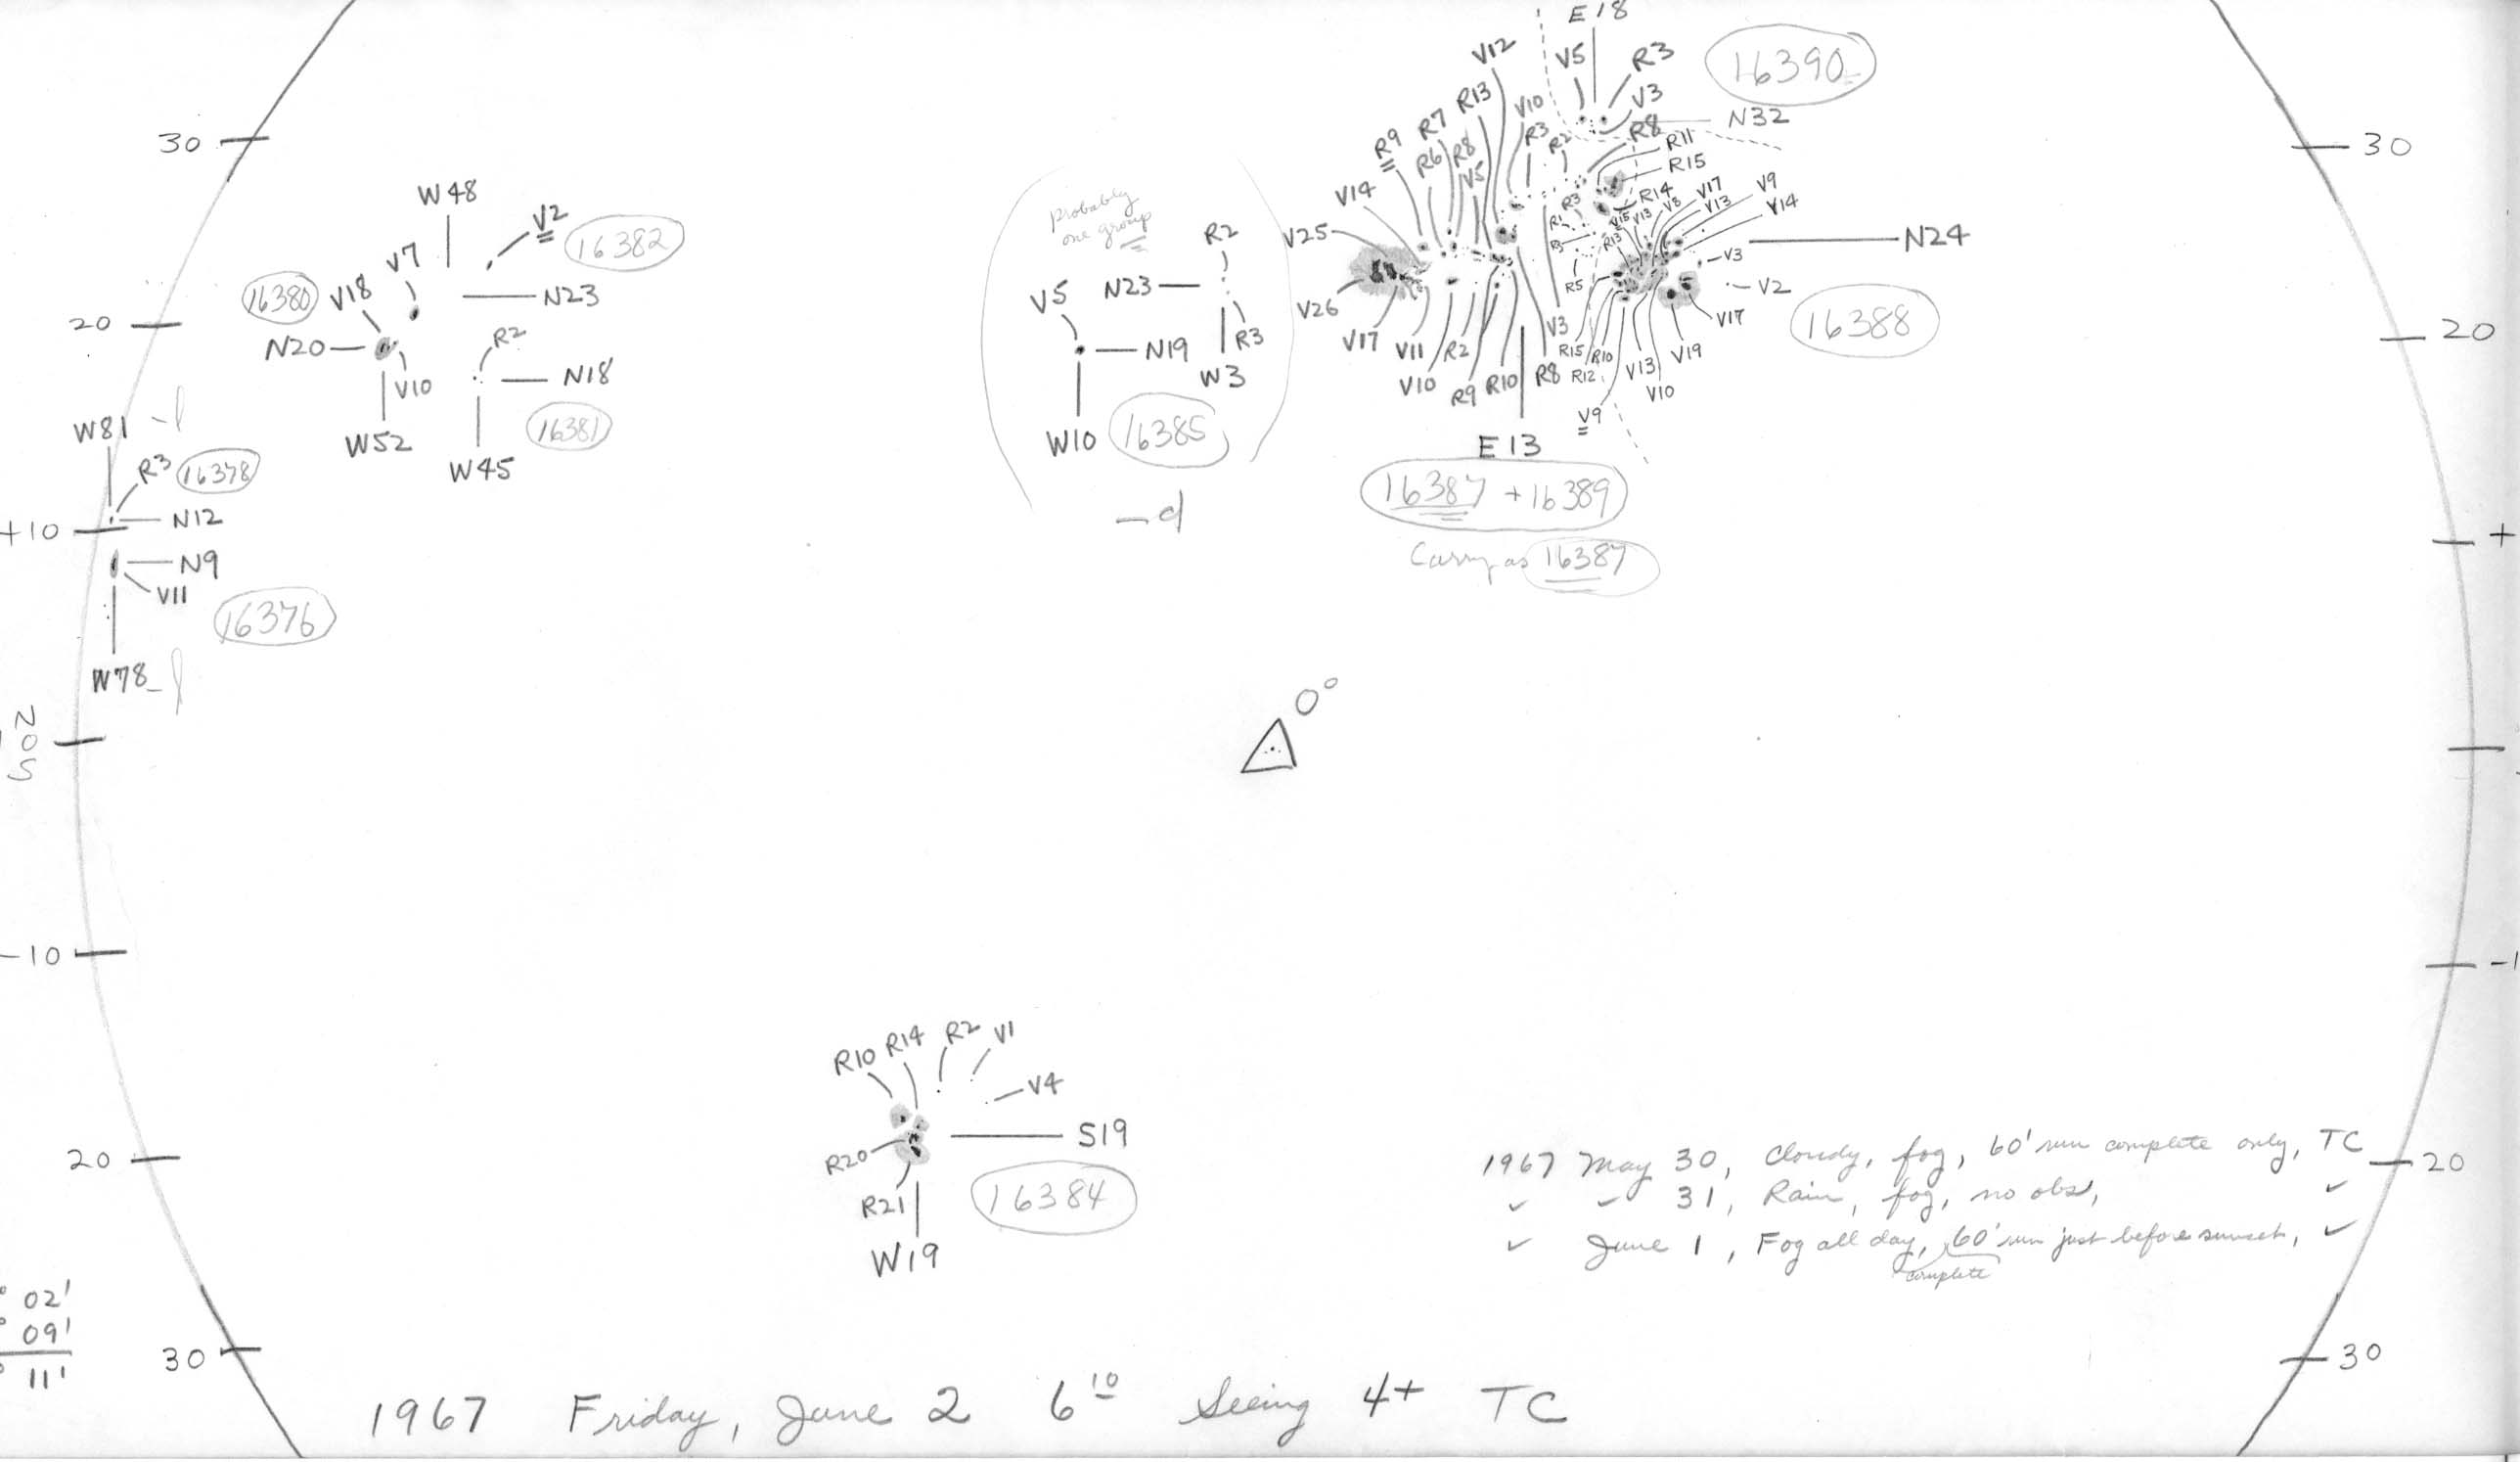 E18
V12
V5
R3
16390
R13
V10
V3
N32
R7
R3
R2
R8
R9
R6
R8
R11
V5
R15
V14
R14
V17
V9
R3
V15
V13
V8
V13
V14
R1
R13
R3
V25
N24
V3
V2
V26
R5
16388
V17
V11
R2
V3
V17
V10
R15
R10
V19
R9
R10
R8
R12
V13
V10
V9
E13
16387 + 16389
Carry as 16387
30
W48
V2
16382
V7
16380
V18
N23
20
N20
R2
V10
N18
W52
16381
W45
W81 -l
R3
16378
+10
N12
N9
V11
16376
W78 -l
probably
one group
R2
V5
N23
N19
R3
W3
W10
16385
-d
30
20
+
N
0
S
0°
-10
-1
R10
R14
R2
V1
V4
S19
R20
R21
16384
W19
20
20
30
30
02'
09'
11'
1967 May 30, Cloudy, fog, 60' run complete only, TC
✓ ✓ 31, Rain, fog, no obs, ✓
✓ June 1, Fog all day, 60' run just before sunset, ✓
complete
1967 Friday, June 2 6 10 Seeing 4+ TC